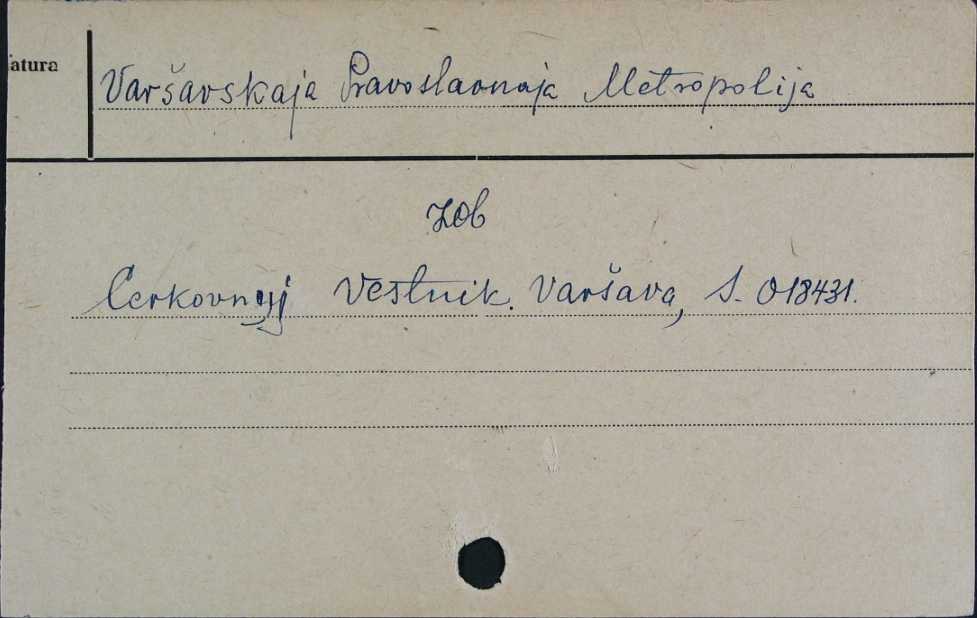 atura
Varšavskaja Pravoslavnaja Metropolija
zob
Cerkovnyj Vestnik. Varšava, S. 018431.